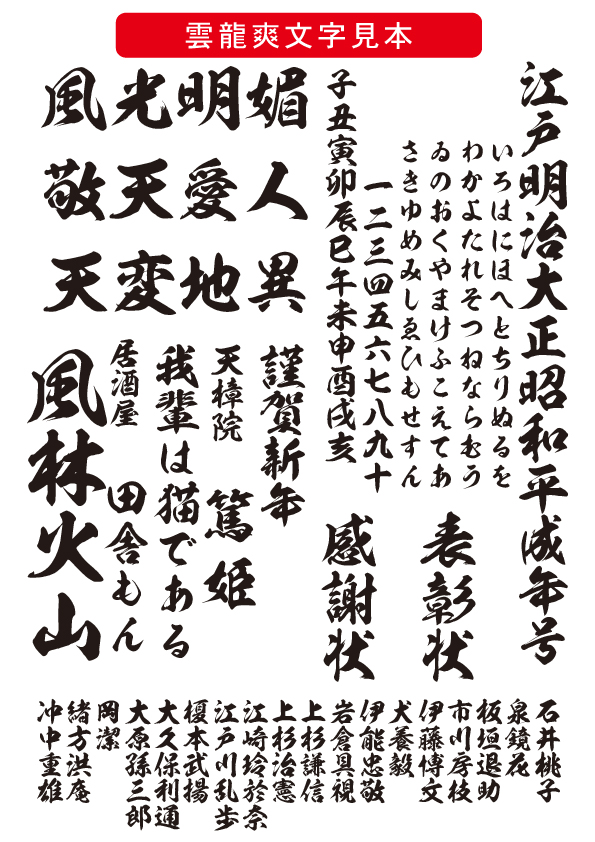 雲龍爽文字見本
江戸明治大正昭和平成年号
いろはにほへとちりぬるを
わかよたれそつねならむう
ゐのおくやまけふこえてあ
さきゆめみしゑひもせすん
一二三四五六七八九十
子丑寅卯辰巳午未申酉戌亥
表彰状
感謝状
媚人異
明愛地
光天変
風敬天
謹賀新年
天樟院
篤姫
我輩は猫である
居酒屋
田舎もん
風林火山
石井桃子
泉鏡花
板垣退助
市川房枝
伊藤博文
犬養毅
伊能忠敬
岩倉具視
上杉謙信
上杉治憲
江崎玲於奈
江戸川乱歩
榎本武揚
大久保利通
大原孫三郎
岡潔
緒方洪庵
沖中重雄